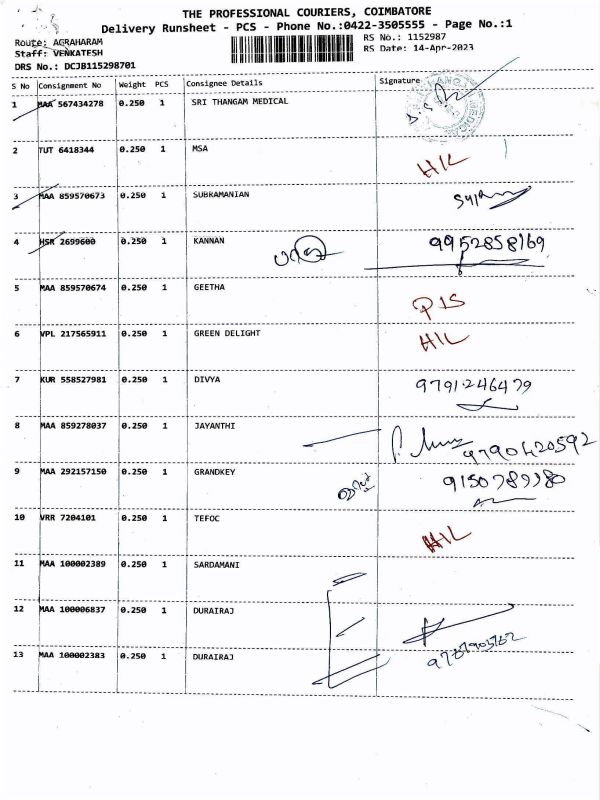 THE PROFESSIONAL COURIERS, COIMBATORE
Delivery Runsheet - PCS - Phone No.:0422-3505555 - Page No.:1
Route: AGRAHARAM
RS No.: 1152987
Staff: VENKATESH
RS Date: 14-Apr-2023
DRS No.: DCJB115298701
S No Consignment No Weight PCS Consignee Details Signature
1 MAA 567434278 0.250 1 SRI THANGAM MEDICAL
2 TUT 6418344 0.250 1 MSA H/L
3 MAA 859570673 0.250 1 SUBRAMANIAN
4 HSR 2699600 0.250 1 KANNAN 9952858169
5 MAA 859570674 0.250 1 GEETHA PIS
6 VPL 217565911 0.250 1 GREEN DELIGHT H/L
7 KUR 558527981 0.250 1 DIVYA 9791246479
8 MAA 859278037 0.250 1 JAYANTHI 9790420592
9 MAA 292157150 0.250 1 GRANDKEY 9150789980
10 VRR 7204101 0.250 1 TEFOC H/L
11 MAA 100002389 0.250 1 SARDAMANI
12 MAA 100006837 0.250 1 DURAIRAJ
13 MAA 100002383 0.250 1 DURAIRAJ